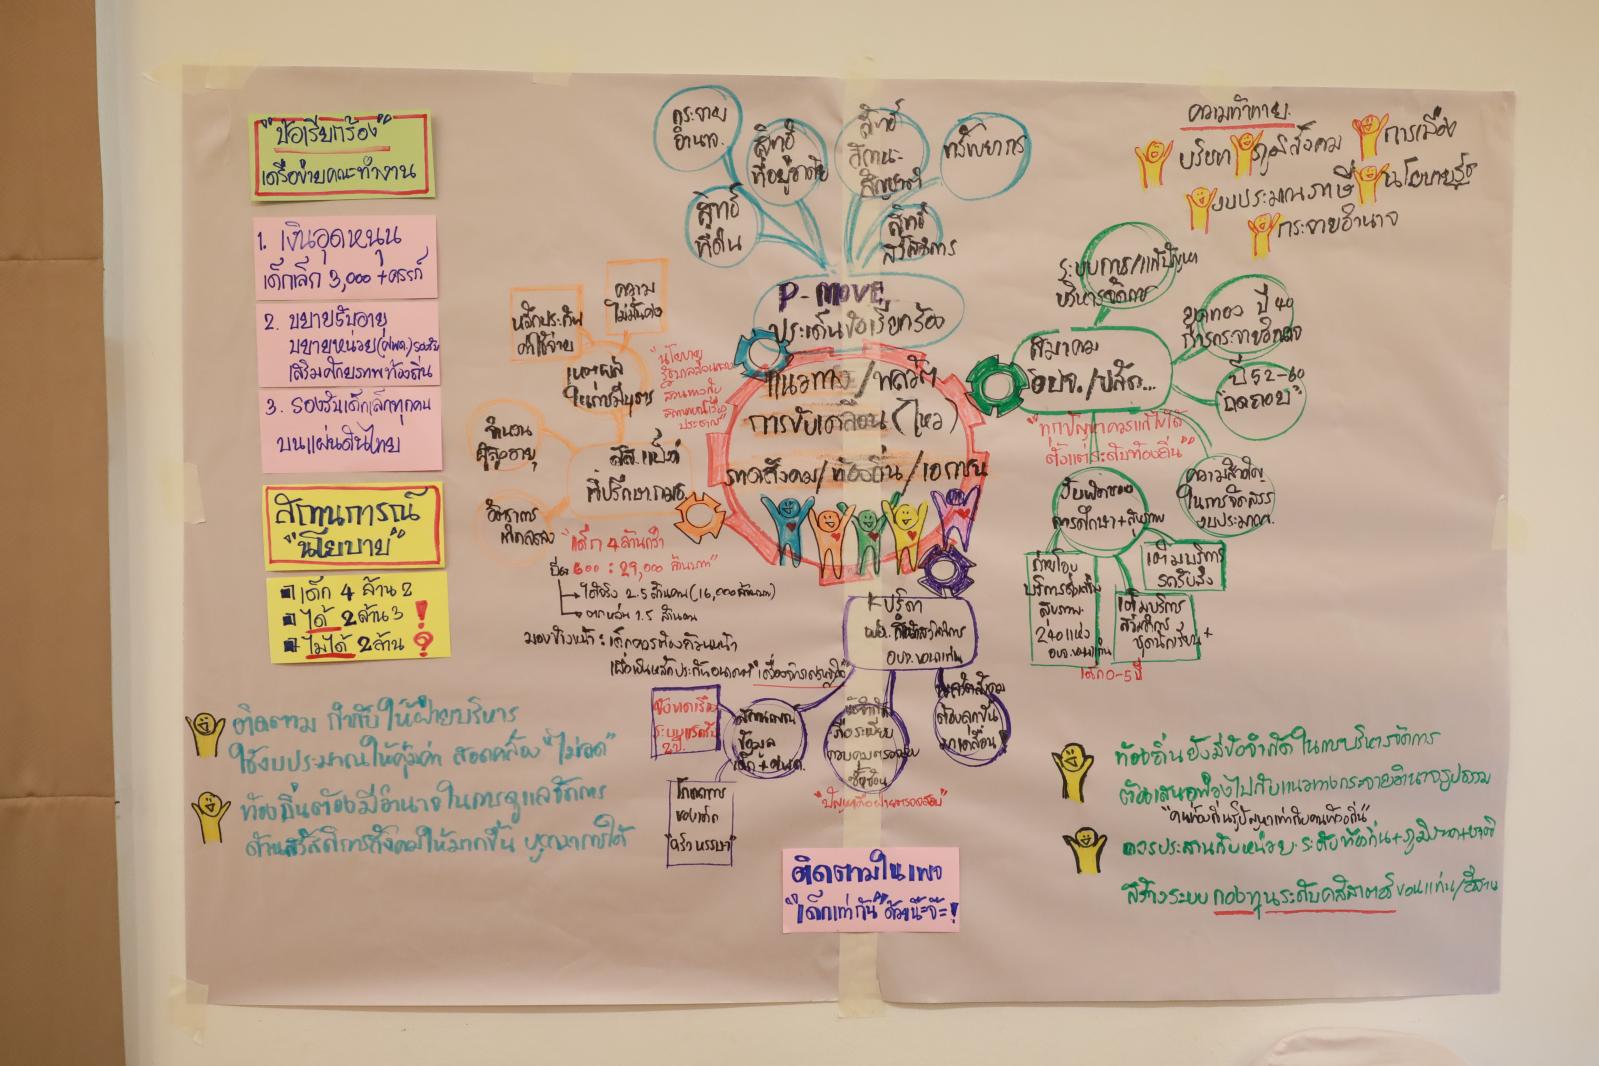 "ข้อเรียกร้อง"
เครือข่ายคณะทำงาน
1. เงินอุดหนุน
เด็กเล็ก 3,000 + ครรภ์
2. ขยายรับอายุ
ขยายหน่วย (ศพด.) รองรับ
เสริมศักยภาพท้องถิ่น
3. รองรับเด็กเล็กทุกคน
บนแผ่นดินไทย
สถานการณ์
"นโยบาย"
เด็ก 4 ล้าน 2
ได้ 2 ล้าน 3 !
ไม่ได้ 2 ล้าน ?
ติดตาม กำกับให้ฝ่ายบริหาร
ใช้งบประมาณให้คุ้มค่า สอดคล้อง "ไม่ลด"
ท้องถิ่นต้องมีอำนาจในการดูแลจัดการ
ด้านสวัสดิการสังคมให้มากขึ้น บูรณาการได้
กระจาย
อำนาจ
สิทธิ
ที่อยู่อาศัย
สิทธิ์
สถานะ-
สัญชาติ
ทรัพยากร
สิทธิ์
ที่ดิน
สิทธิ์
สวัสดิการ
P-MOVE
ประเด็นข้อเรียกร้อง
แนวทาง/พลวัต
การขับเคลื่อน (ไหว)
ภาคสังคม/ท้องถิ่น/เอกชน
ความ
ไม่มั่นคง
หลักประกัน
ค่าใช้จ่าย
เหตุผล
ในการมีบุตร
"นโยบาย
จำนวน
ผู้สูงอายุ
อัตราการ
เกิดลดลง
ที่ปรึกษา กมธ.
"เด็ก 4 ล้านกว่า
600 : 29,000 ล้านบาท"
ได้จริง 2.5 ล้านคน (16,000 ล้านบาท)
ตกหล่น 1.5 ล้านคน
มองข้างหน้า : เด็กควรต้องถ้วนหน้า
อบจ. ขอนแก่น
สถานการณ์
ข้อมูล
เด็ก + ศพด.
โภชนาการ
ของเด็ก
ระเบียบ
ควบคุมตรวจสอบ
ซ้ำซ้อน
ภาคสังคม
ต้องลุกขึ้น
มาเคลื่อน
ติดตามในเพจ
"เด็กเท่ากัน" ด้วยน๊ะจ๊ะ !
ความท้าทาย
บริบท ภูมิสังคม การเมือง
งบประมาณภาษี นโยบายรัฐ
กระจายอำนาจ
ระบบการ/แก้ปัญหา
บริหารจัดการ
ยุคทอง ปี 40
การกระจายอำนาจ
สมาคม
อบจ./ปลัด...
ปี 52-60
"ถดถอย"
"ทุกปัญหาควรแก้ไขได้
ตั้งแต่ระดับท้องถิ่น"
ความสำคัญ
ในการจัดสรร
งบประมาณ
รับผิดชอบ
การศึกษา + สุขภาพ
ถ่ายโอน
สุขภาพ
240 แห่ง
อบจ. ขอนแก่น
เด็ก 0-5 ปี
เพิ่มบริการ
รถรับส่ง
เพิ่มบริการ
สวัสดิการ
ชุดนักเรียน +
ท้องถิ่นยังมีข้อจำกัดในการบริหารจัดการ
ต้องเสนอพ่วงไปกับแนวทางกระจายอำนาจรูปธรรม
"คนท้องถิ่นรู้ปัญหาเท่ากับคนท้องถิ่น"
ควรประสานกับหน่วย ระดับท้องถิ่น + ภูมิภาค + ชาติ
สร้างระบบ กองทุนระดับคลัสเตอร์ ขอนแก่น/อีสาน